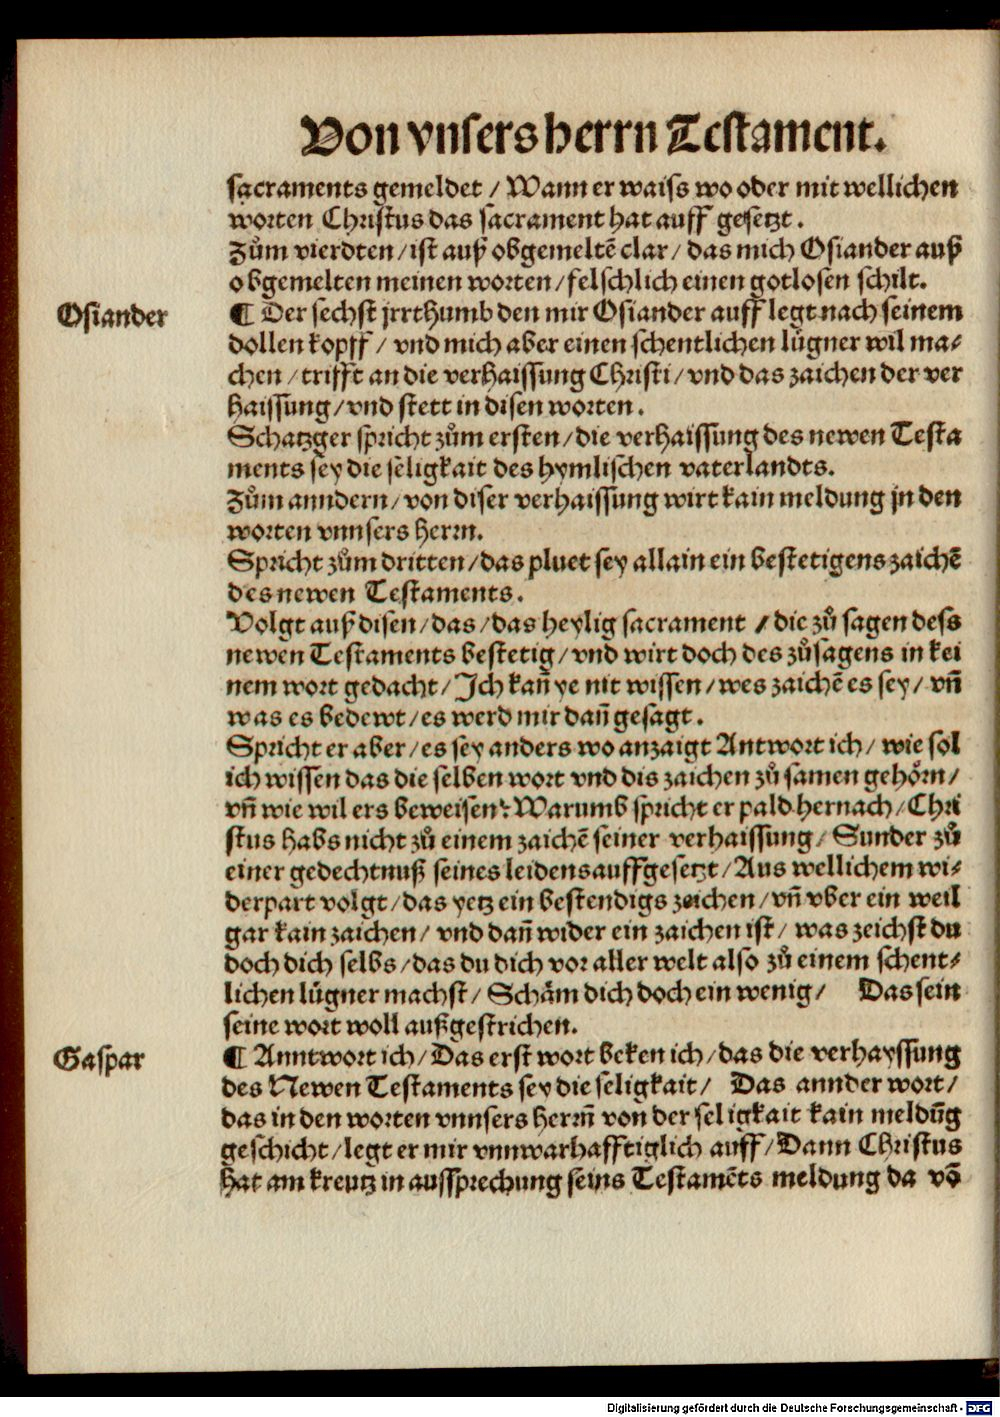 Von vnsers herrn Testament.
sacraments gemeldet / Wann er waiss wo oder mit wellichen
worten Christus das sacrament hat auff gesetzt.
Zům vierdten / ist auß obgemeltē clar / das mich Osiander auß
obgemelten meinen worten / felschlich einen gotlosen schilt.
Osiander
¶ Der sechst jrrthumb den mir Osiander auff legt nach seinem
dollen kopff / vnd mich aber einen schentlichen lügner wil ma⸗
chen / trifft an die verhaissung Christi / vnd das zaichen der ver
haissung / vnd stett in disen worten.
Schatzger spricht zům ersten / die verhaissung des newen Testa
ments sey die seligkait des hymlischen vaterlandts.
Zům anndern / von diser verhaissung wirt kain meldung jn den
worten vnnsers herrn.
Spricht zům dritten / das pluet sey allain ein bestetigens zaichē
des newen Testaments.
Volgt auß disen / das / das heylig sacrament / die zů sagen dess
newen Testaments bestetig / vnd wirt doch des zůsagens in kei
nem wort gedacht / Ich kañ ye nit wissen / wes zaichē es sey / vñ
was es bedewt / es werd mir dañ gesagt.
Spricht er aber / es sey anders wo anzaigt Antwort ich / wie sol
ich wissen das die selben wort vnd dis zaichen zů samen gehörn /
vñ wie wil ers beweisen? Warumb spricht er pald hernach / Chri
stus habs nicht zů einem zaichē seiner verhaissung / Sunder zů
einer gedechtnuß seines leidens auffgesetzt / Aus wellichem wi⸗
derpart volgt / das yetz ein bestendigs zeichen / vñ vber ein weil
gar kain zaichen / vnd dañ wider ein zaichen ist / was zeichst du
doch dich selbs / das du dich vor aller welt also zů einem schent⸗
lichen lügner machst / Schäm dich doch ein wenig / Das sein
seine wort woll außgestrichen.
Gaspar
¶ Anntwort ich / Das erst wort beken ich / das die verhayssung
des Newen Testaments sey die seligkait / Das annder wort /
das in den worten vnnsers herrñ von der seligkait kain meldūg
geschicht / legt er mir vnnwarhafftiglich auff / Dann Christus
hat am kreutz in aussprechung seins Testamēts meldung da vō
Digitalisierung gefördert durch die Deutsche Forschungsgemeinschaft - DFG